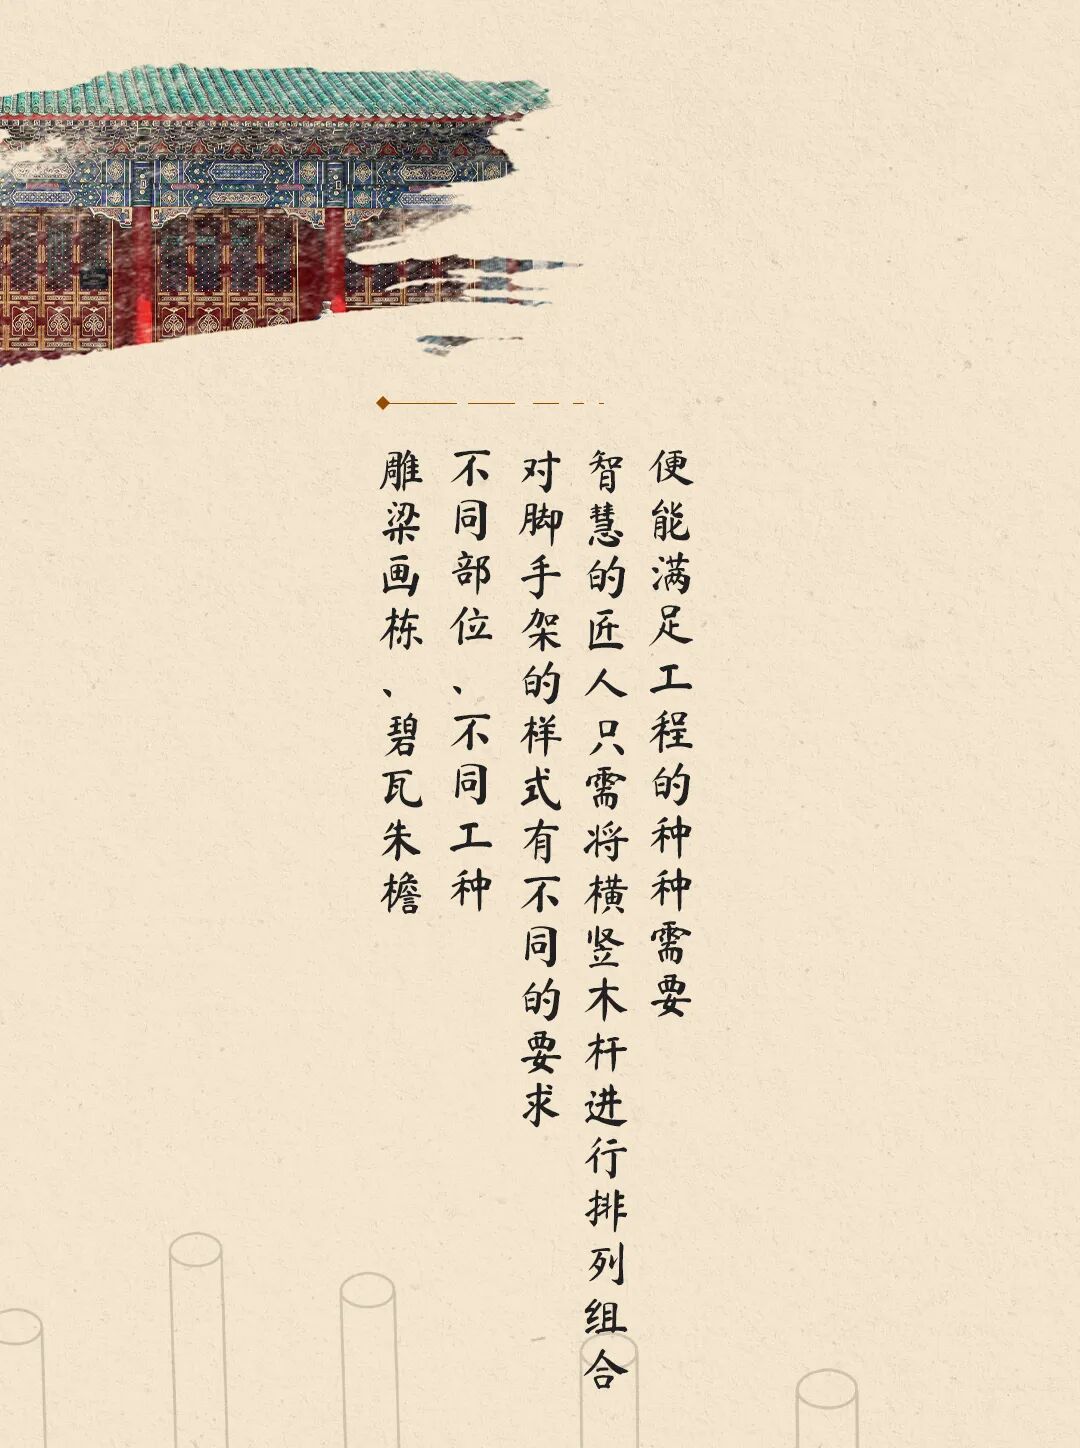 雕梁画栋、碧瓦朱檐
不同部位、不同工种
对脚手架的样式有不同的要求
智慧的匠人只需将横竖木杆进行排列组合
便能满足工程的种种需要